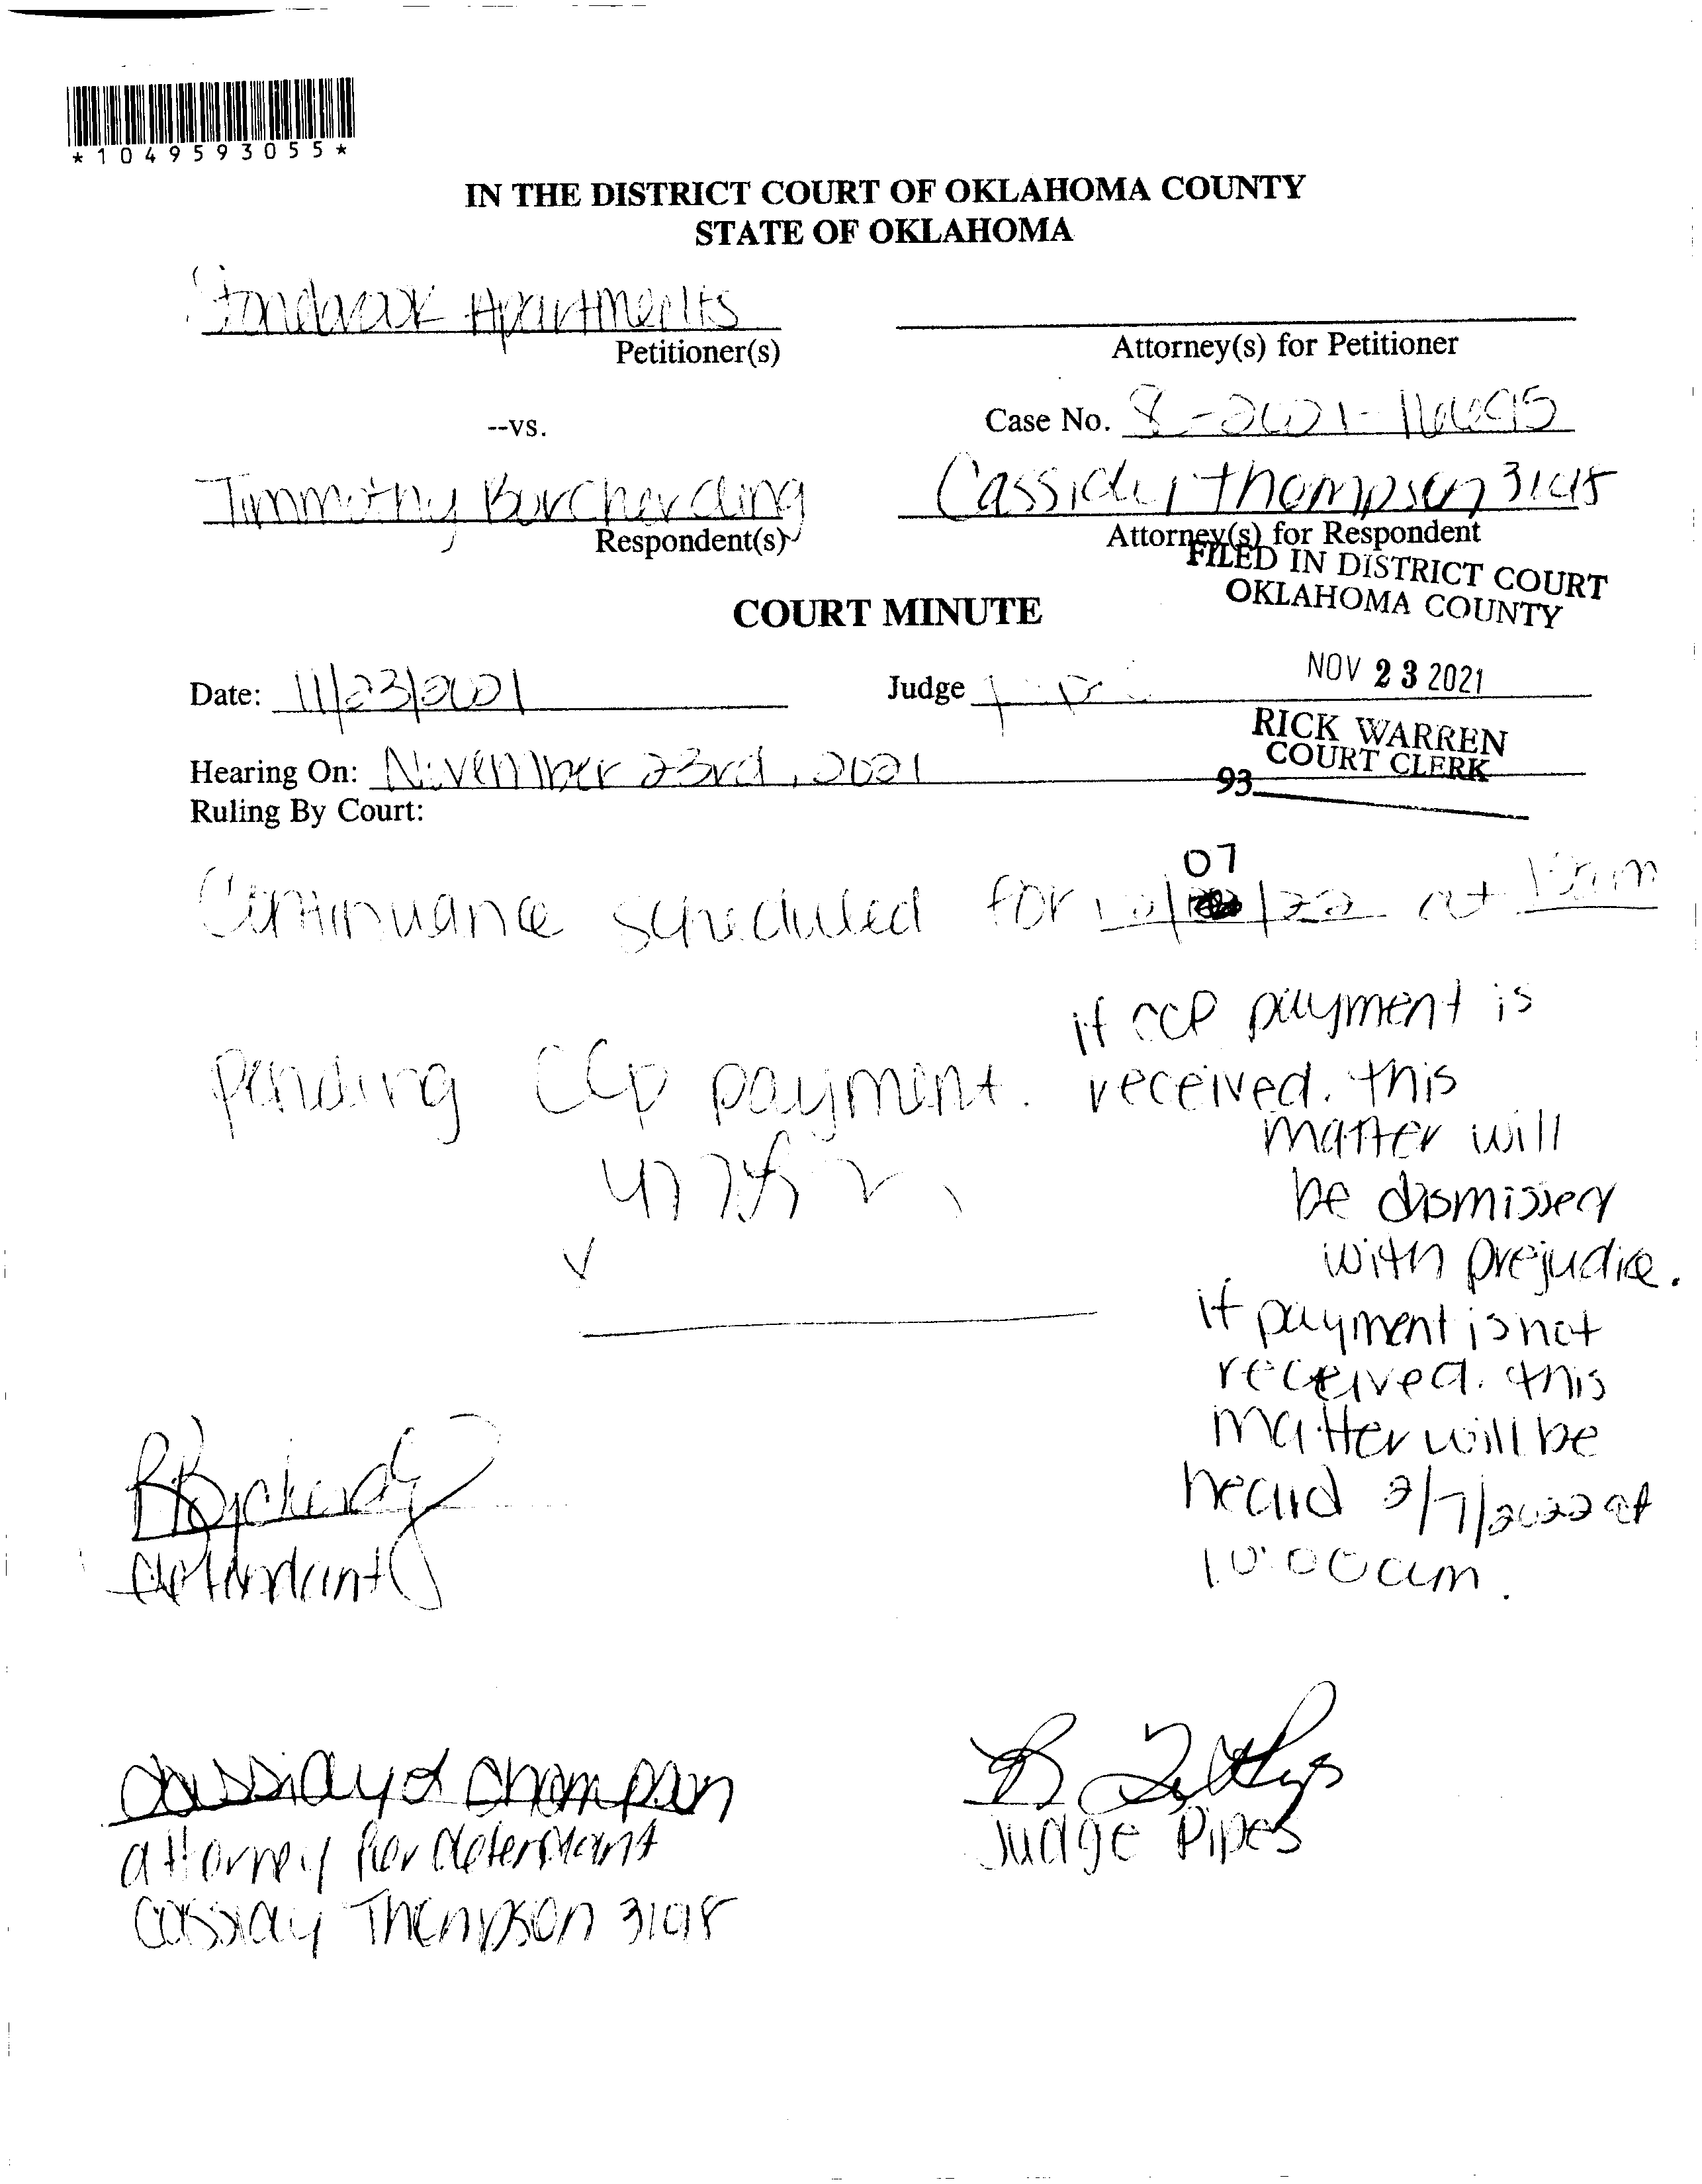 *1049593055*
IN THE DISTRICT COURT OF OKLAHOMA COUNTY
STATE OF OKLAHOMA
Apartments
Petitioner(s)
Attorney(s) for Petitioner
--vs.
Case No. -2021-
Timmothy Burcherding
Respondent(s)
Cassidy Thompson
Attorney(s) for Respondent
FILED IN DISTRICT COURT
OKLAHOMA COUNTY
COURT MINUTE
NOV 23 2021
Date: 11/23/2021
Judge
RICK WARREN
COURT CLERK
Hearing On: November 23rd, 2021
93
Ruling By Court:
07
Continuance scheduled for /22 at
pending CCP payment.
if CCP payment is
received. this
matter will
be dismissed
with prejudice.
if payment is not
received. this
matter will be
heard 2/7/2022 at
10:00am.
defendant
Cassidy Thompson
attorney for defendant
Cassidy Thompson
Judge Pipes